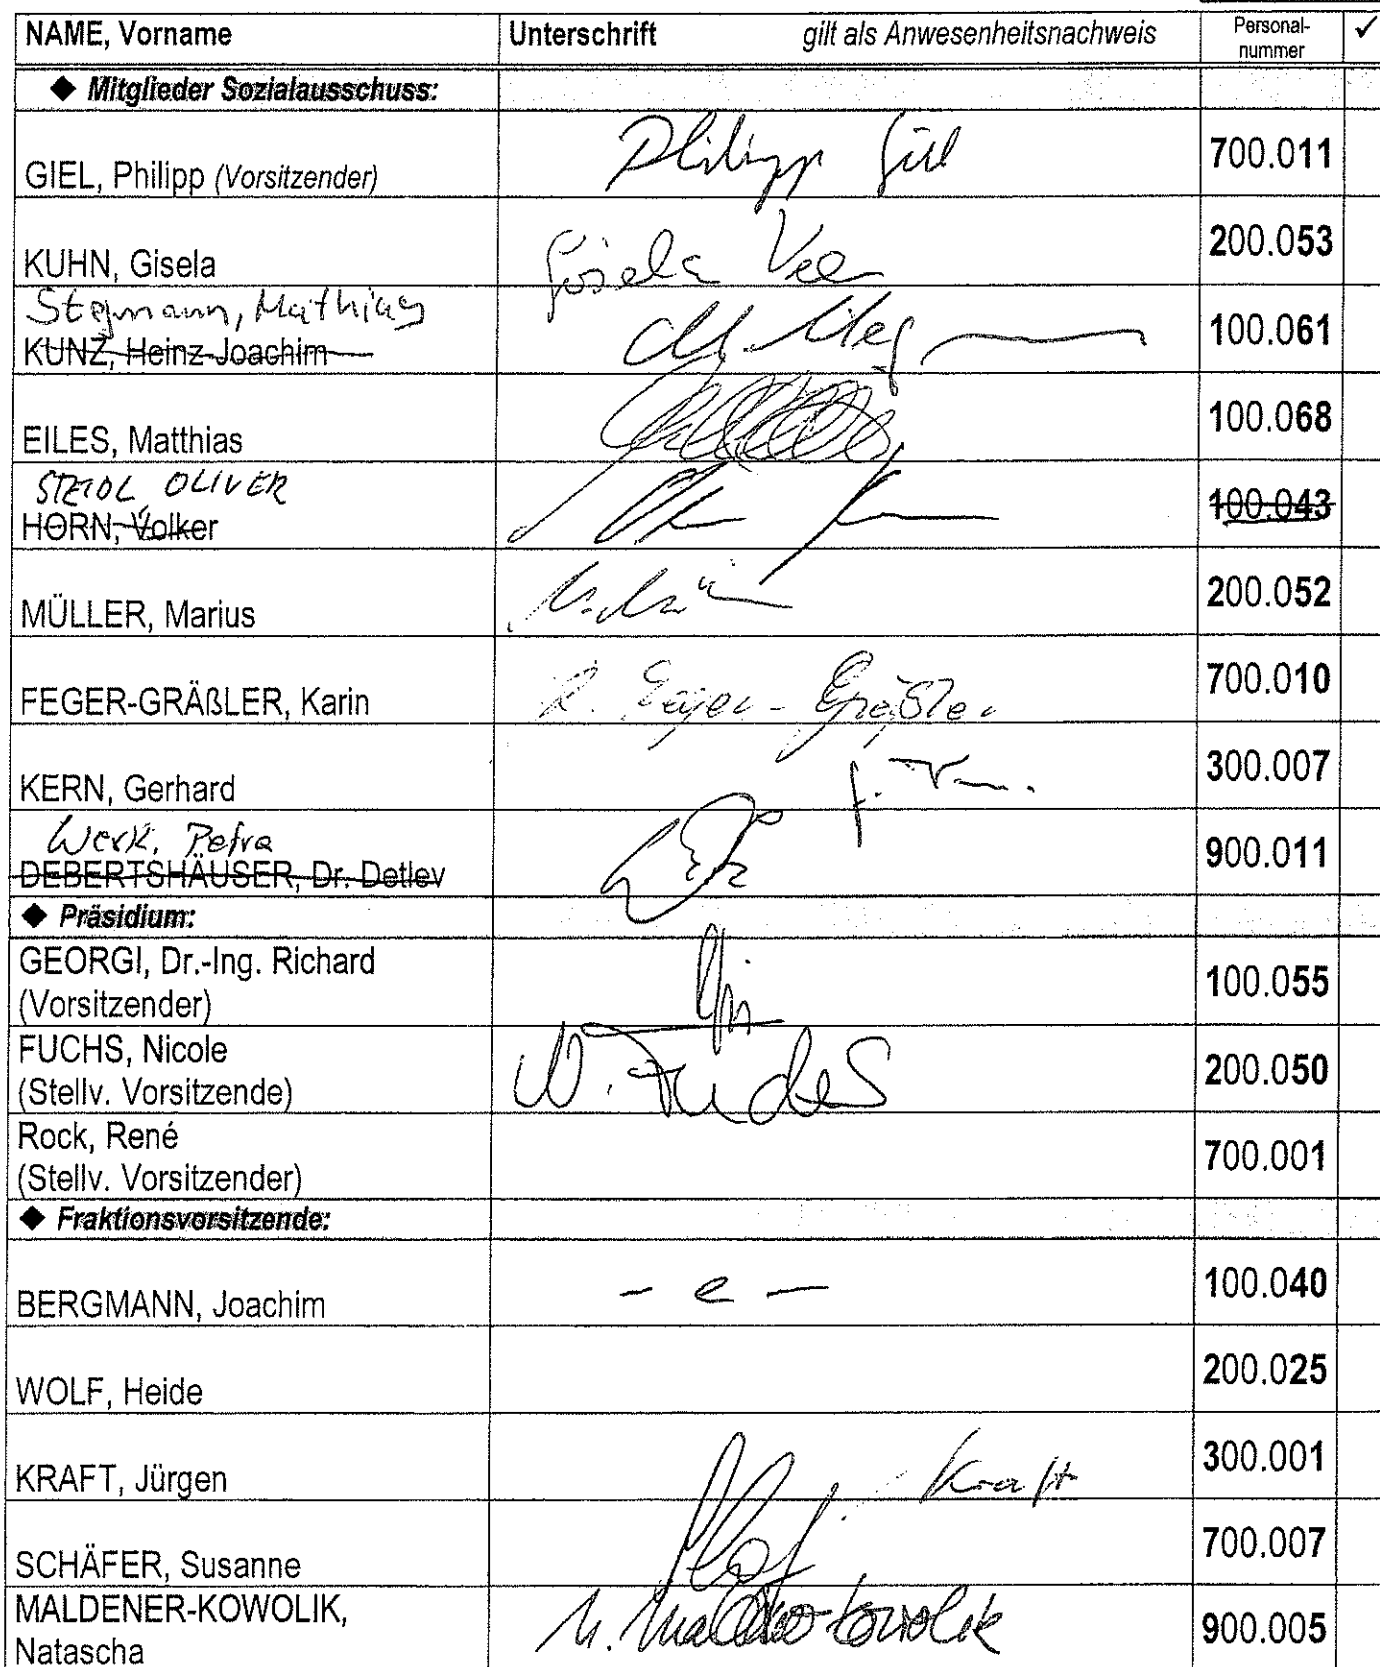 NAME, Vorname Unterschrift gilt als Anwesenheitsnachweis Personal-nummer ✓
◆ Mitglieder Sozialausschuss:
GIEL, Philipp (Vorsitzender) Philipp Giel 700.011
KUHN, Gisela Gisela 200.053
Stegmann, Mathias
KUNZ, Heinz-Joachim 100.061
EILES, Matthias 100.068
STEIDL OLIVER
HORN, Volker 100.043
MÜLLER, Marius 200.052
FEGER-GRÄßLER, Karin K. Feger-Gräßler 700.010
KERN, Gerhard 300.007
Werk, Petra
DEBERTSHÄUSER, Dr. Detlev 900.011
◆ Präsidium:
GEORGI, Dr.-Ing. Richard
(Vorsitzender) 100.055
FUCHS, Nicole N. Fuchs
(Stellv. Vorsitzende) 200.050
Rock, René
(Stellv. Vorsitzender) 700.001
◆ Fraktionsvorsitzende:
BERGMANN, Joachim - e - 100.040
WOLF, Heide 200.025
KRAFT, Jürgen Kraft 300.001
SCHÄFER, Susanne 700.007
MALDENER-KOWOLIK, N. Maldener-Kowolik
Natascha 900.005